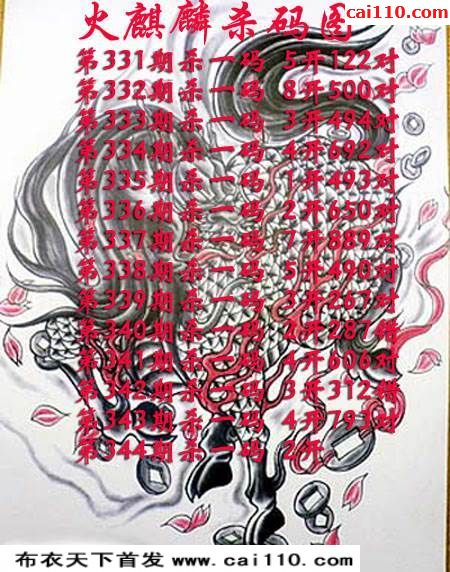 cai110.com
火麒麟杀码图
第331期杀一码 5开122对
第332期杀一码 8开500对
第333期杀一码 3开494对
第334期杀一码 4开692对
第335期杀一码 1开493对
第336期杀一码 2开650对
第337期杀一码 7开889对
第338期杀一码 5开490对
第339期杀一码 3开267对
第340期杀一码 2开287错
第341期杀一码 4开606对
第342期杀一码 3开312错
第343期杀一码 4开793对
第344期杀一码 2开
布衣天下首发 www.cai110.com